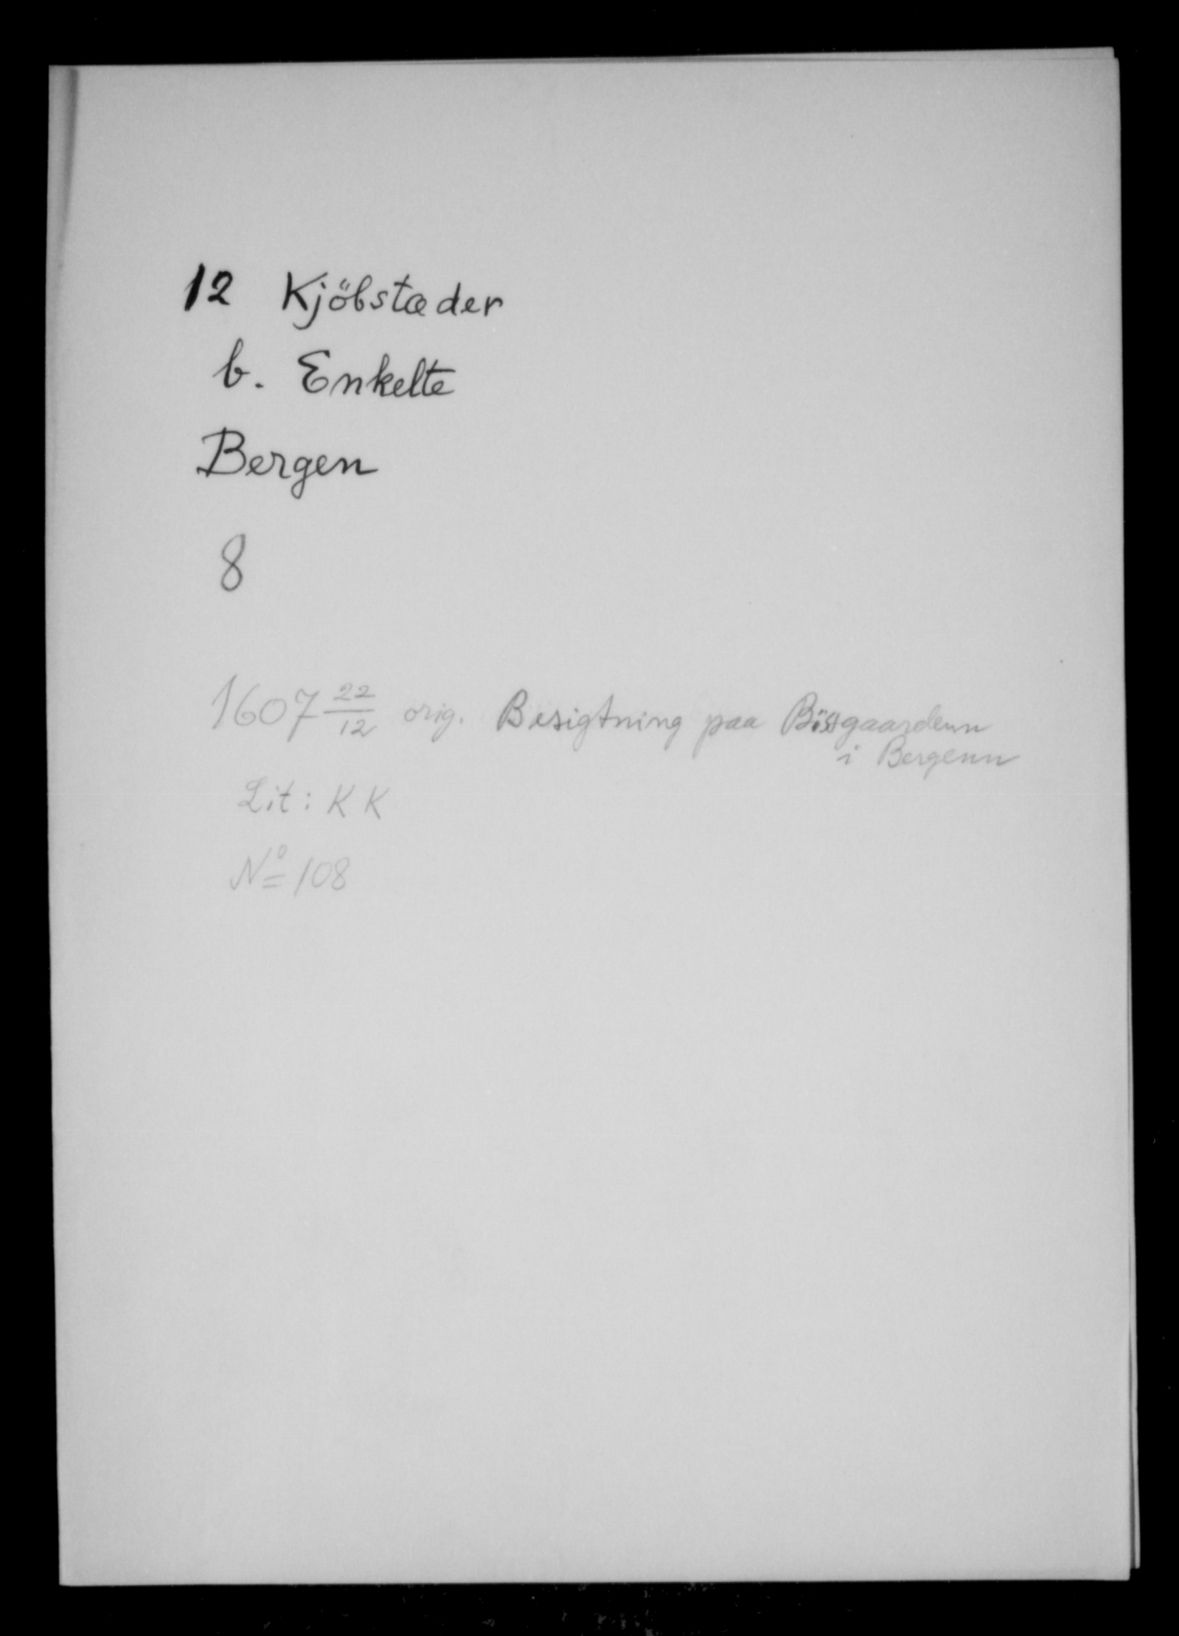 12 Kjöbstæder
b. Enkelte
Bergen
8
1607 22/12 orig. Besigtning paa Bispgaardenn
i Bergenn
Lit: K K
No 108